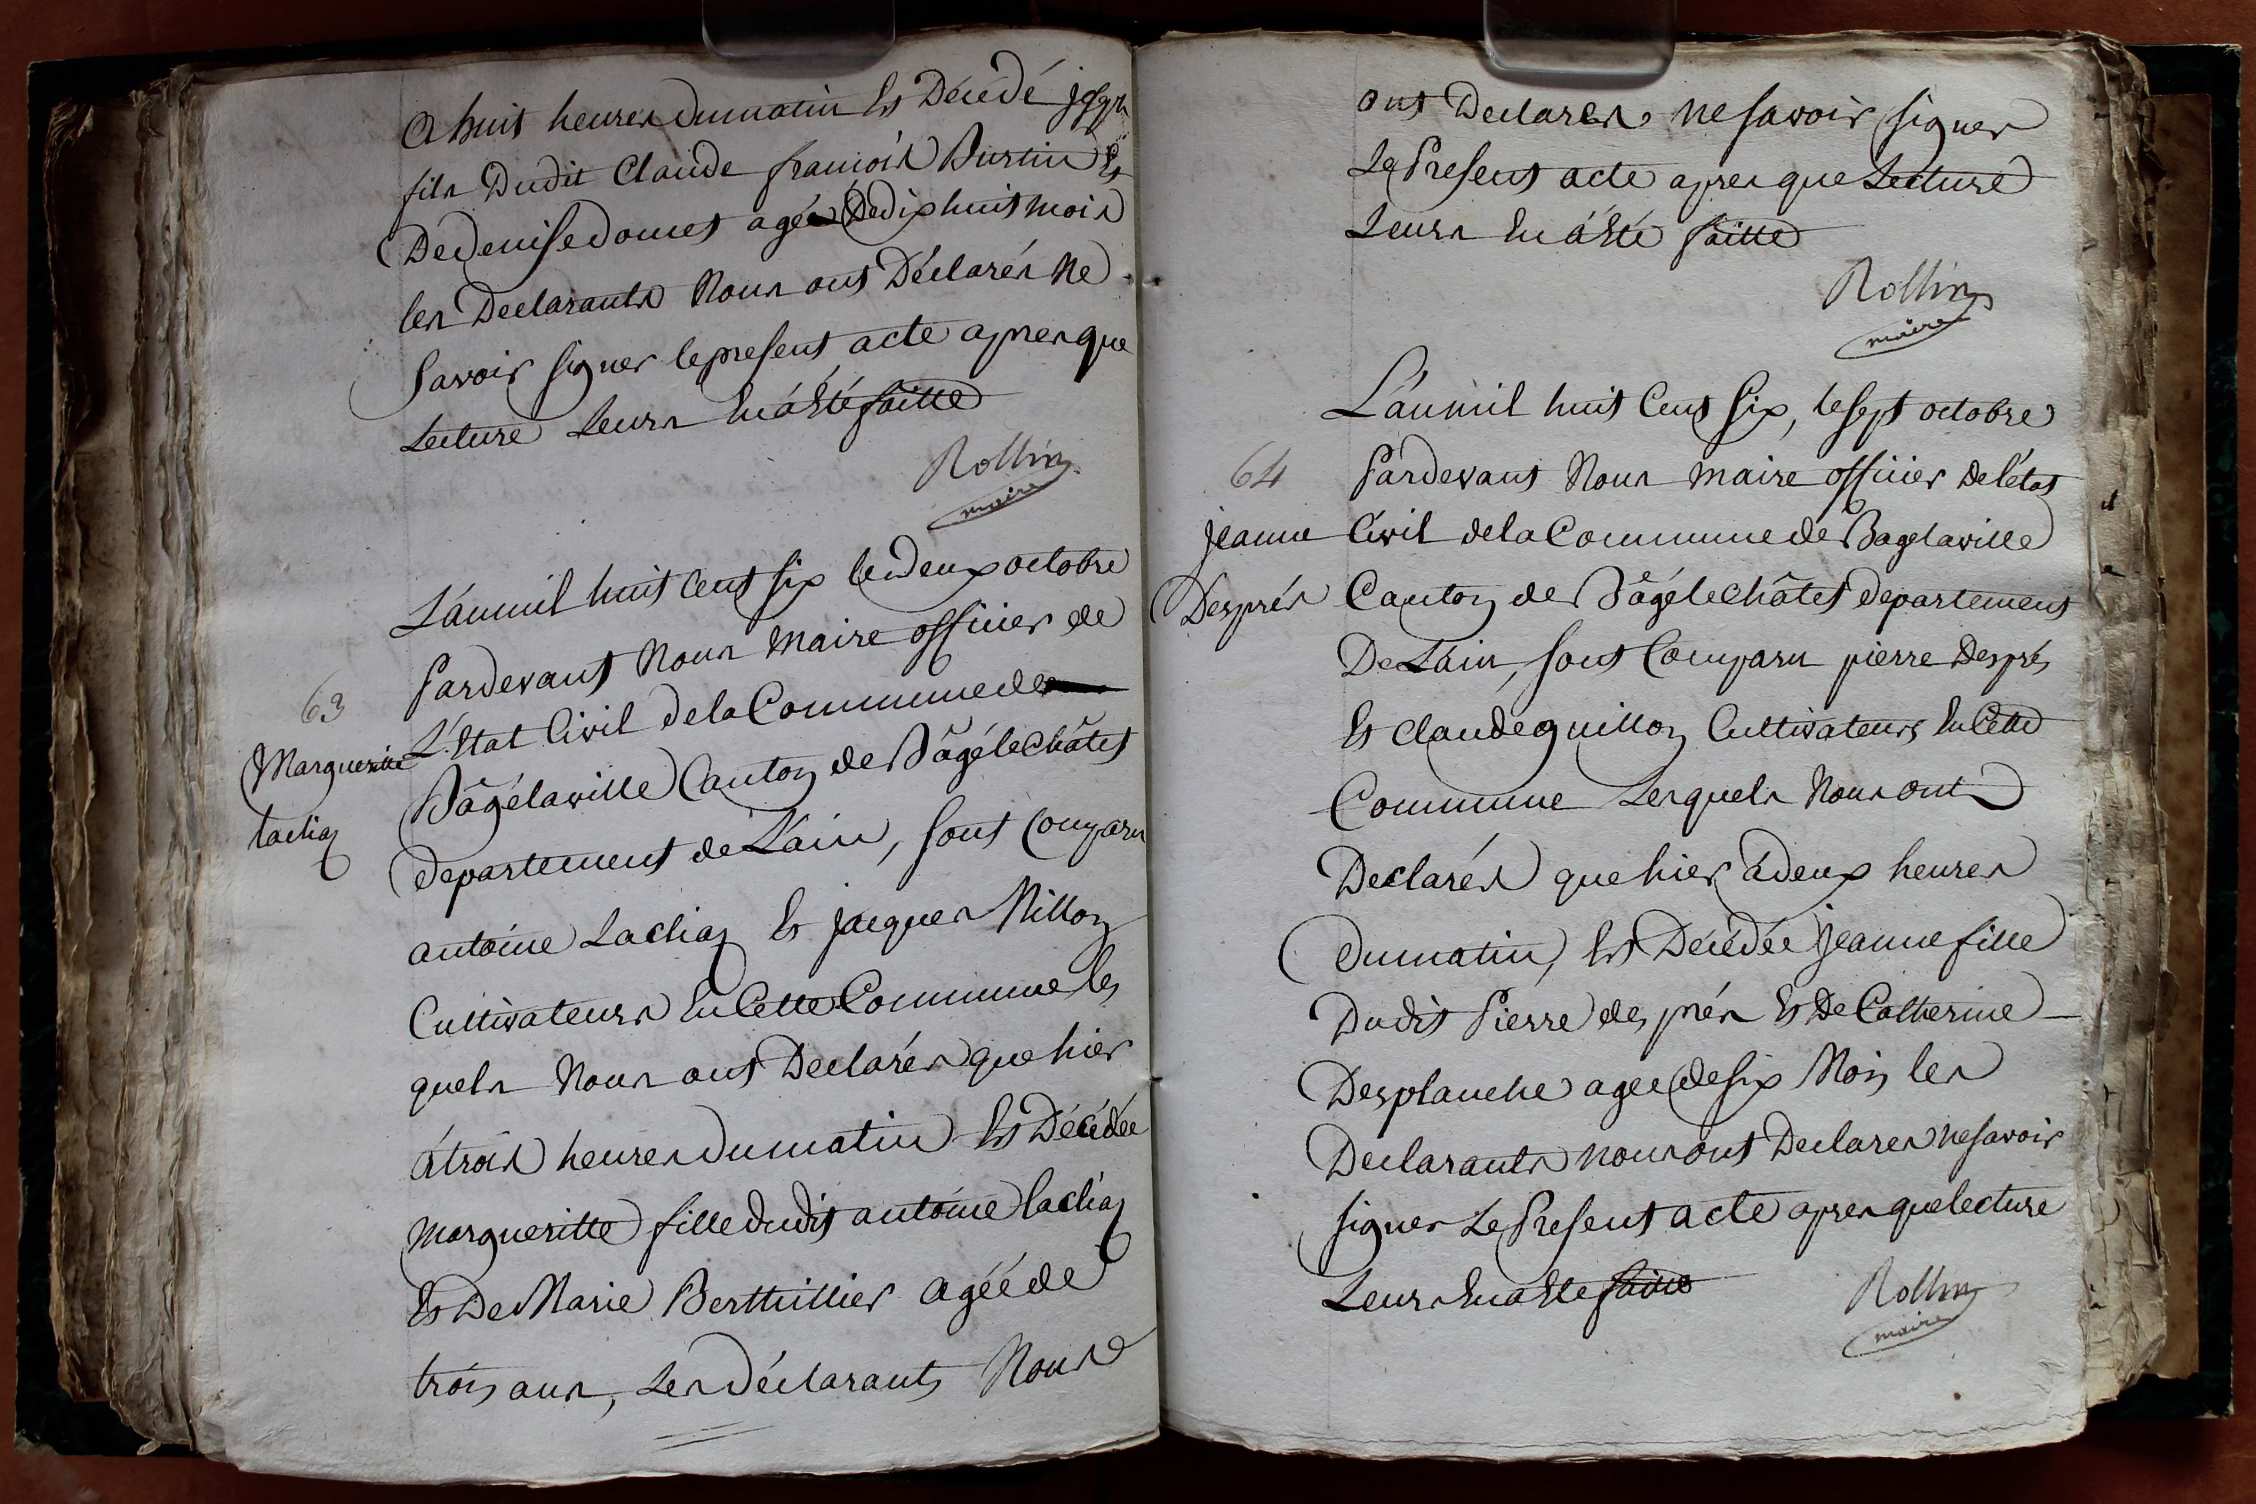 a huit heures du matin Est Décédé
fils Dudit Claude françois Burtin Et
De denise domet agée de dix huit mois
les Declarants Nous ont Déclarés Ne
Savoir signer le present acte apres que
Lecture Leurs En á Eté faitte
Rollin
maire
L'án mil huit Cent six le deux octobre
Pardevant Nous Maire officier de
63
L'Etat Civil de la Commune de
Margueritte
Bâgélaville Canton de Bâgélechâtel
lachaz
departement de L'áin, sont Comparu
antoine Lachaz Et jacques Millon
Cultivateurs En Cette Commune les
quels Nous ont Declarés que hier
á trois heures du matin Est Décédée
Margueritte fille dudit antoine lachaz
Et De Marie Berthillier agéé de
trois ans, Les Déclarants Nous
ont Declarés ne savoir signer
Le Present acte apres que Lecture
Leurs En á Eté faitte
Rollin
maire
L'án mil huit Cent six, le sept octobre
64
Pardevant Nous maire officier de l'état
jeanne
Civil de la Commune de Bagelaville
Després
Canton de Bâgélechâtel departement
De L'áin, sont Comparu pierre Després
Et Claude guillon Cultivateurs En Cette
Commune Lesquels Nous ont
Declarés que hier á deux heures
du matin, Est Décédée jeanne fille
Dudit Pierre des prés Et De Catherine
Desplanche agee de six Mois les
Declarants nous ont Declares ne savoir
signer Le Present acte apres que lecture
Leurs En a Ete faitte
Rollin
maire